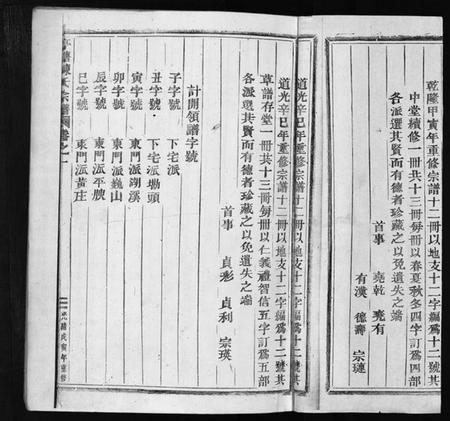 乾隆甲寅年重修宗譜十二冊以地支十二字編爲十二號其
中堂續修一冊共十三冊每冊以春夏秋冬四字訂爲四部
各派選其賢而有德者珍藏之以免遺失之端
首事 堯乾 堯有
有漢 德壽 宗璉
道光辛巳年重修宗譜十二冊以地支十二字編爲十二號其
草譜存堂一冊共十三冊每冊以仁義禮智信五字訂爲五部
各派選其賢而有德者珍藏之以免遺失之端
首事 貞彩 貞利 宗瑛
計開領譜字號
子字號 下宅派
丑字號 下宅派塘頭
寅字號 東門派湖溪
卯字號 東門派巍山
辰字號 東門派平腴
巳字號 東門派黃庄
氏宗譜 卷之一
光緒戊寅年重修